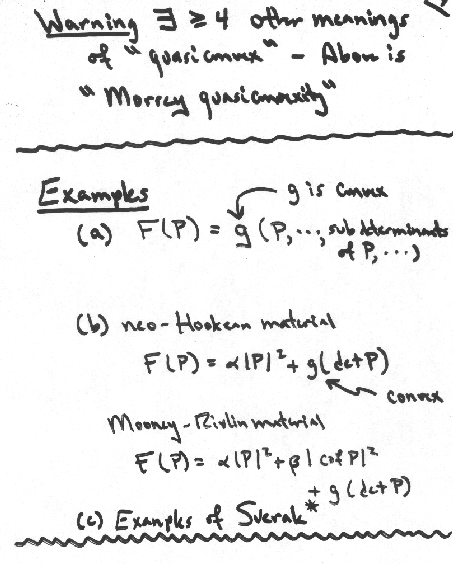 Warning ∃ ≥ 4 other meanings
of "quasiconvex" - Above is
"Morrey quasiconvexity"
Examples
g is convex
(a) F(P) = g (P, ..., subdeterminants
of P, ...)
(b) neo-Hookean material
F(P) = α|P|² + g(det P)
convex
Mooney-Rivlin material
F(P) = α|P|² + β|cof P|²
+ g(det P)
(c) Examples of Sverak*